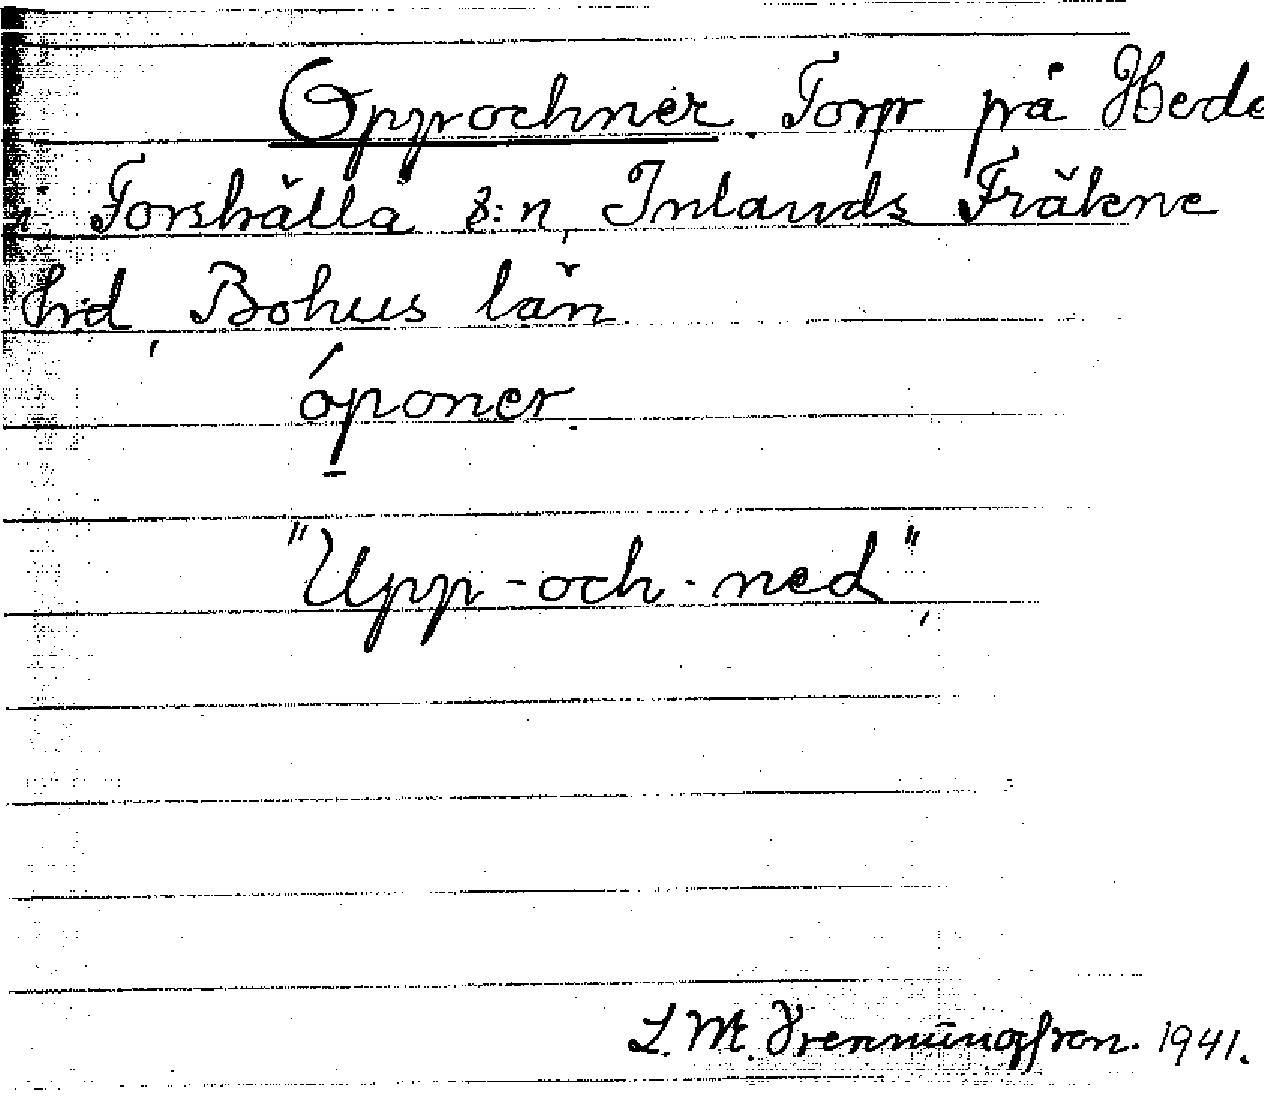 Oppochner. Torp på Hede
i Forshälla s:n, Inlands Fräkne
hrd, Bohus län
óponer.
"Upp-och-ned",
1941.